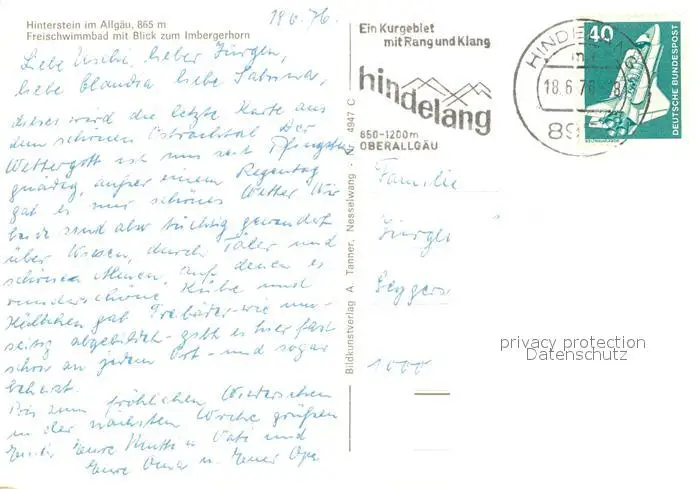 Hinterstein im Allgäu, 865 m
Freischwimmbad mit Blick zum Imbergerhorn
18.6.76.
Liebe Uschi, lieber Jürgen,
liebe Claudia liebe Sabrina,
dieses wird die letzte Karte aus
dem schönen Ostrachtal. Der
Wettergott ist uns seit Pfingsten
gnädig, außer einem Regentag
gab es nur schönes Wetter. Wir
beide sind aber tüchtig gewandert
über Wiesen, durch Täler und
schönen Almen, auf denen es
wunderschöne Kühe und
Kälbchen gab. Freibäder wie um-
seitig abgebildet gibt es hier fast
schon an jedem Ort - und sogar
beheizt.
Bis zum fröhlichen Wiedersehen
in der nächsten Woche grüßen
Euch Eure Mutti u. Vati und
Eure Oma u. Euer Opa
Bildkunstverlag A. Tanner, Nesselwang - Nr. 4947 C
Ein Kurgebiet
mit Rang und Klang
hindelang
850-1200m
OBERALLGÄU
HINDELANG
18.6.76-18
40
DEUTSCHE BUNDESPOST
Familie
1000
privacy protection
Datenschutz